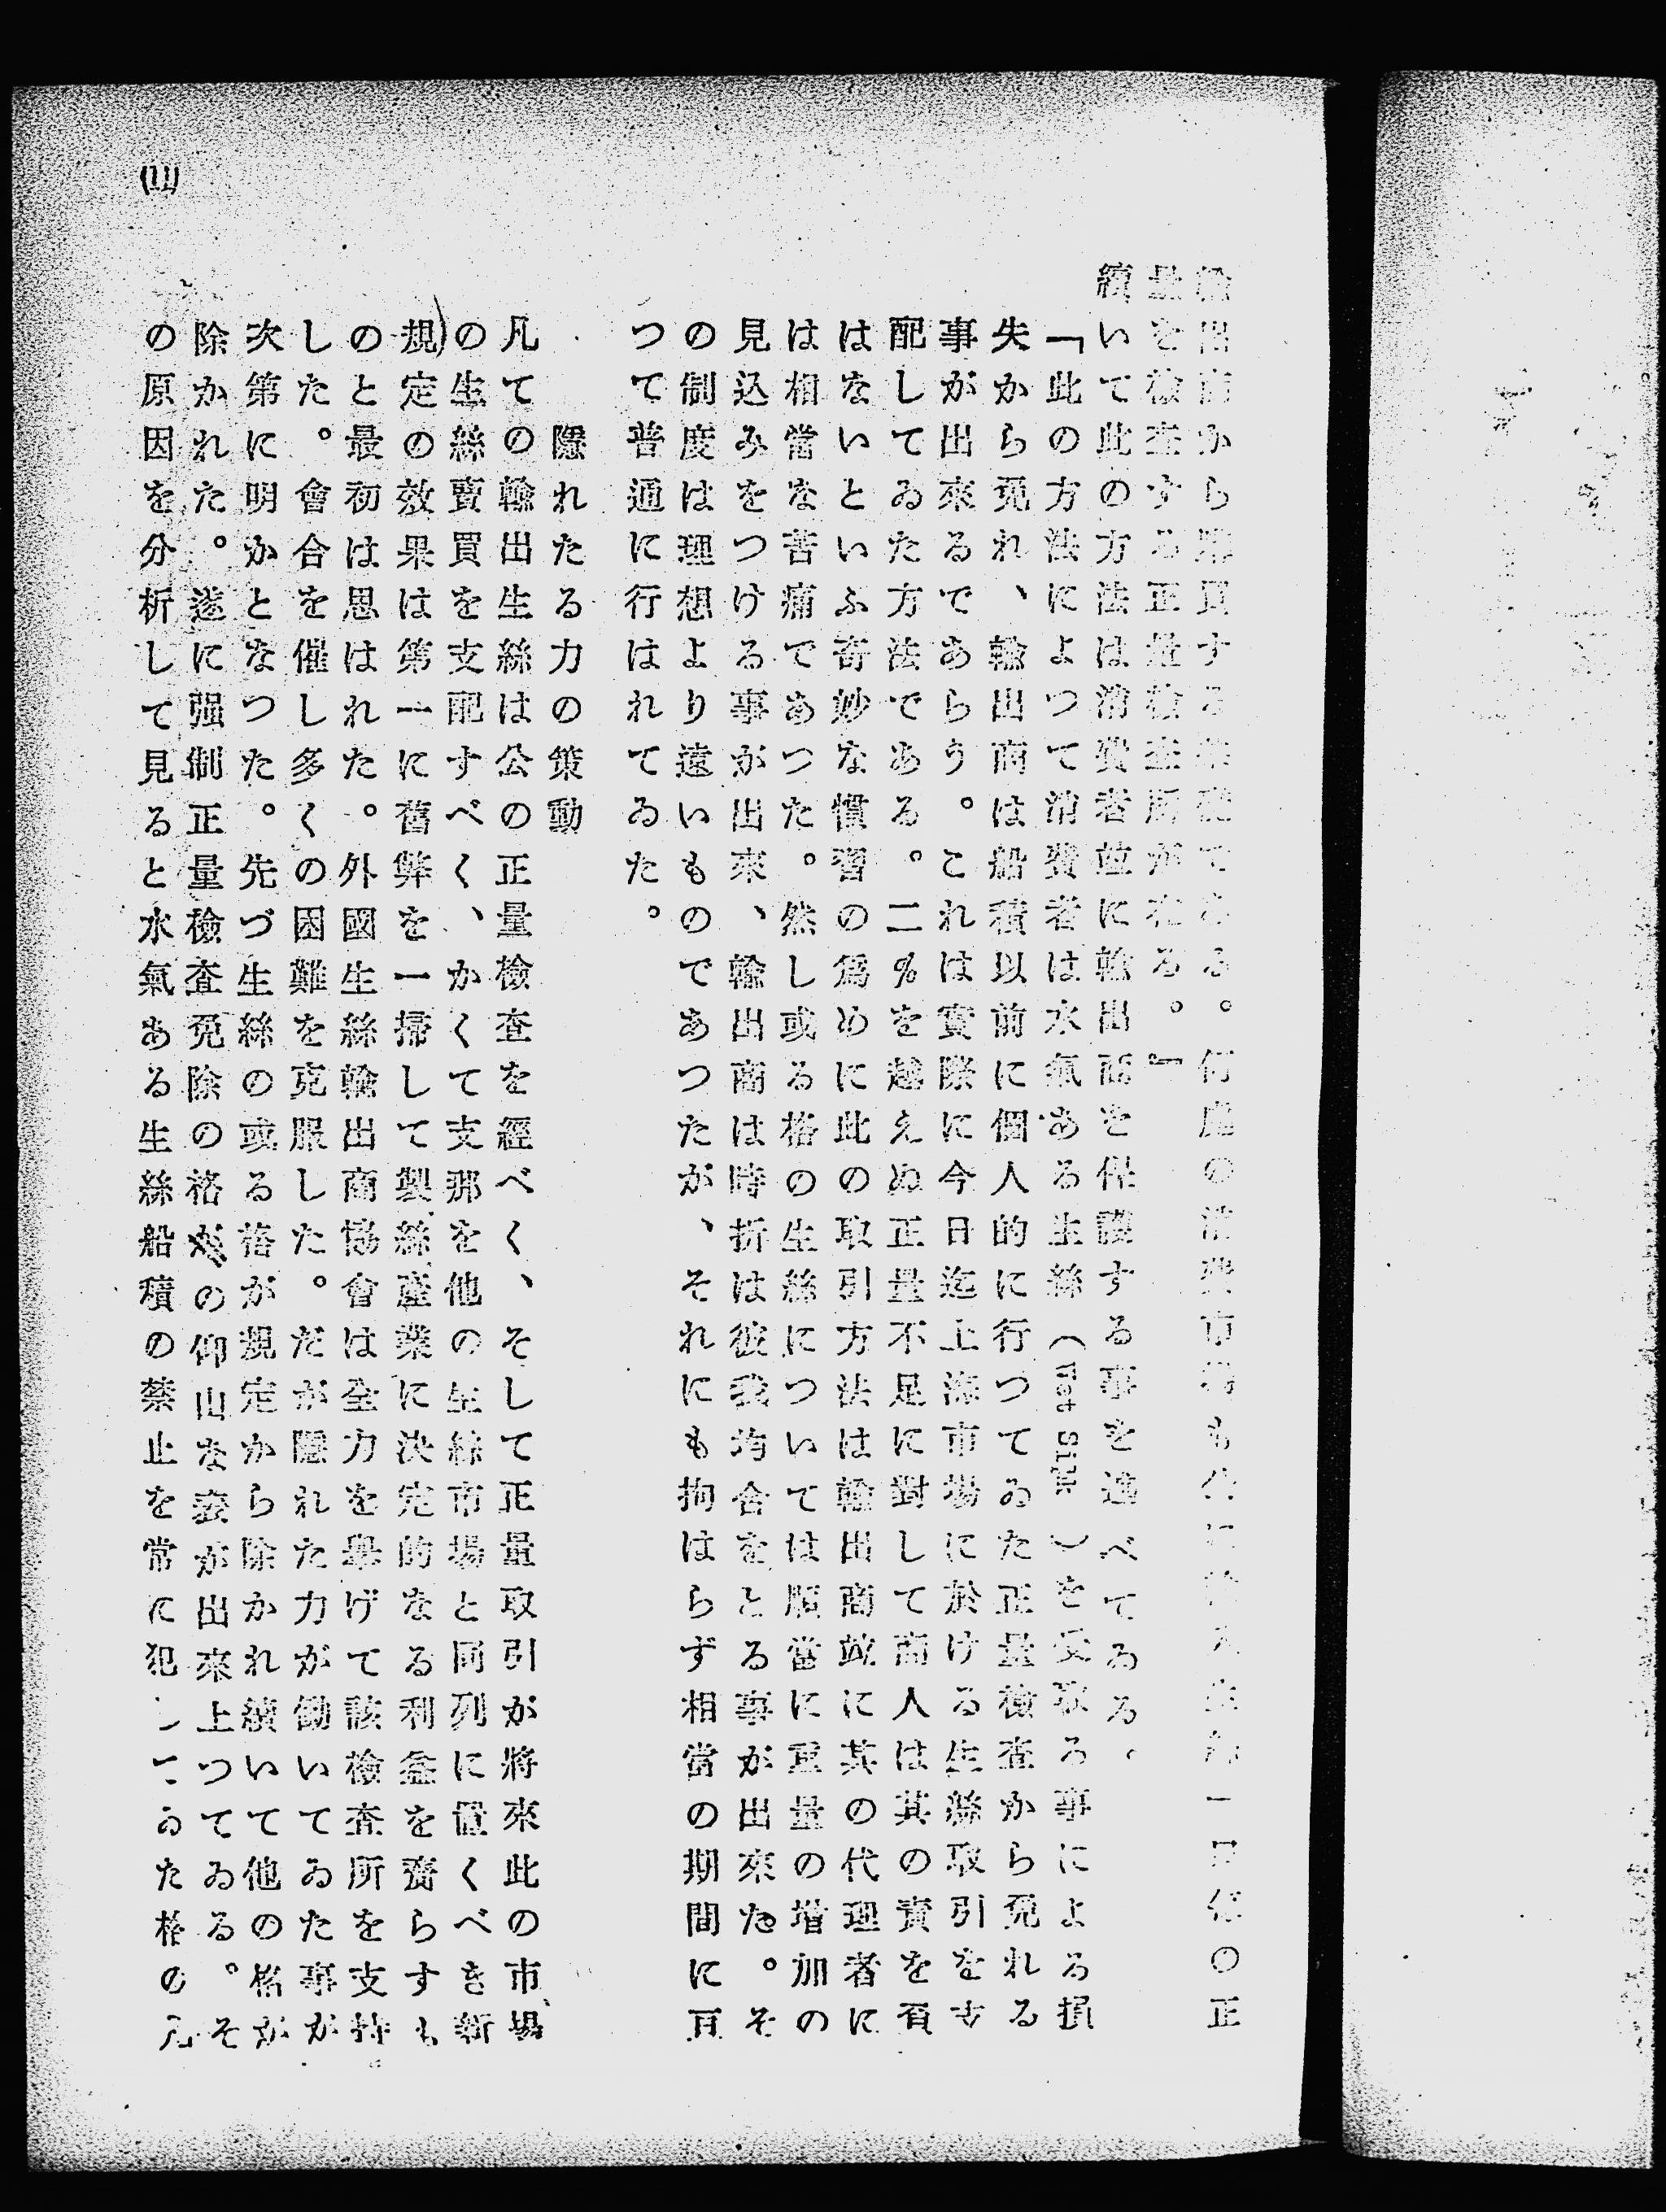 輸出商から購買する基礎である。何處の消費市場も合に輸入生絲一日俵の正
量を檢査する正量檢査所が在る。』
續いて此の方法は消費者並に輸出商を保護する事を述べてゐる。
「此の方法によつて消費者は水氣ある生絲(wet silk)を受取る事による損
失から免れ、輸出商は船積以前に個人的に行つてゐた正量檢査から免れる
事が出來るであらう。これは實際に今日迄上海市場に於ける生絲取引を支
配してゐた方法である。二%を越えぬ正量不足に對して商人は其の責を有
はないといふ奇妙な慣習の爲めに此の取引方法は輸出商竝に其の代理者に
は相當な苦痛であつた。然し或る格の生絲については順當に重量の増加の
見込みをつける事が出來、輸出商は時折は彼我均合をとる事が出來た。そ
の制度は理想より遠いものであつたが、それにも拘はらず相當の期間に亘
つて普通に行はれてゐた。
隱れたる力の策動
凡ての輸出生絲は公の正量檢査を經べく、そして正量取引が將來此の市場
の生絲賣買を支配すべく、かくて支那を他の生絲市場と同列に置くべき新
規定の效果は第一に舊弊を一掃して製絲産業に決定的なる利益を齎らすも
のと最初は思はれた。外國生絲輸出商協會は全力を擧げて該檢査所を支持
した。會合を催し多くの困難を克服した。だが隱れた力が働いてゐた事が
次第に明かとなつた。先づ生絲の或る格が規定から除かれ續いて他の格が
除かれた。遂に强制正量檢査免除の格の仰山な表が出來上つてゐる。そ
の原因を分析して見ると水氣ある生絲船積の禁止を常に犯してゐた格の
(11)